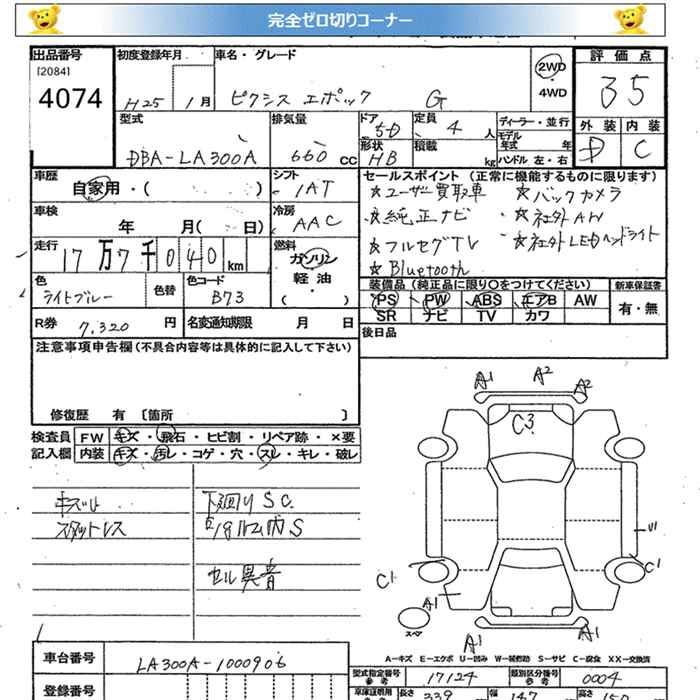 完全ゼロ切りコーナー
出品番号 初度登録年月 車名・グレード 評価点
[2084]
4074 H25 1月 ピクシス エポック G 2WD・4WD 35
型式 排気量 ドア 5D 定員 4人 ディーラー・並行 外装 内装
モデル年式 年
DBA-LA300A 660 cc 形状 HB 積載 kg ハンドル 左・右 D C
車歴 シフト セールスポイント (正常に機能するものに限ります)
自家用・( ) IAT ☆ユーザー買取車 ☆バックカメラ
車検 冷房 ☆純正ナビ ☆社外AW
年 月( 日) AAC ☆フルセグTV ☆社外LEDヘッドライト
走行 燃料 ☆Bluetooth
17万7千040km ガソリン
軽油
( )
色 色替 色コード 装備品 (純正品に限り〇をつけてください) 新車保証書
ライトブルー B73 PS PW ABS エアB AW 有・無
SR ナビ TV カワ
R券 7,320円 名変通知期限 月 日 後日品
注意事項申告欄 (不具合内容等は具体的に記入して下さい)
修復歴 有 [箇所 ]
検査員 FW キズ・飛石・ヒビ割・リペア跡・×要
記入欄 内装 キズ・汚レ・コゲ・穴・スレ・キレ・破レ
キズレ 下廻りSC
スタットレス
セル異音
A1 A2 A2
C3
C1 C1
A1
スペア
A1 A1
A-キズ E-エクボ U-凹み W-補修跡 S-サビ C-腐食 XX-交換済
車台番号 LA300A-1000906
型式指定番号 参考 17124 類別区分番号 参考 0004
登録番号 車庫証明用 参考 長さ 339 幅 147 高さ